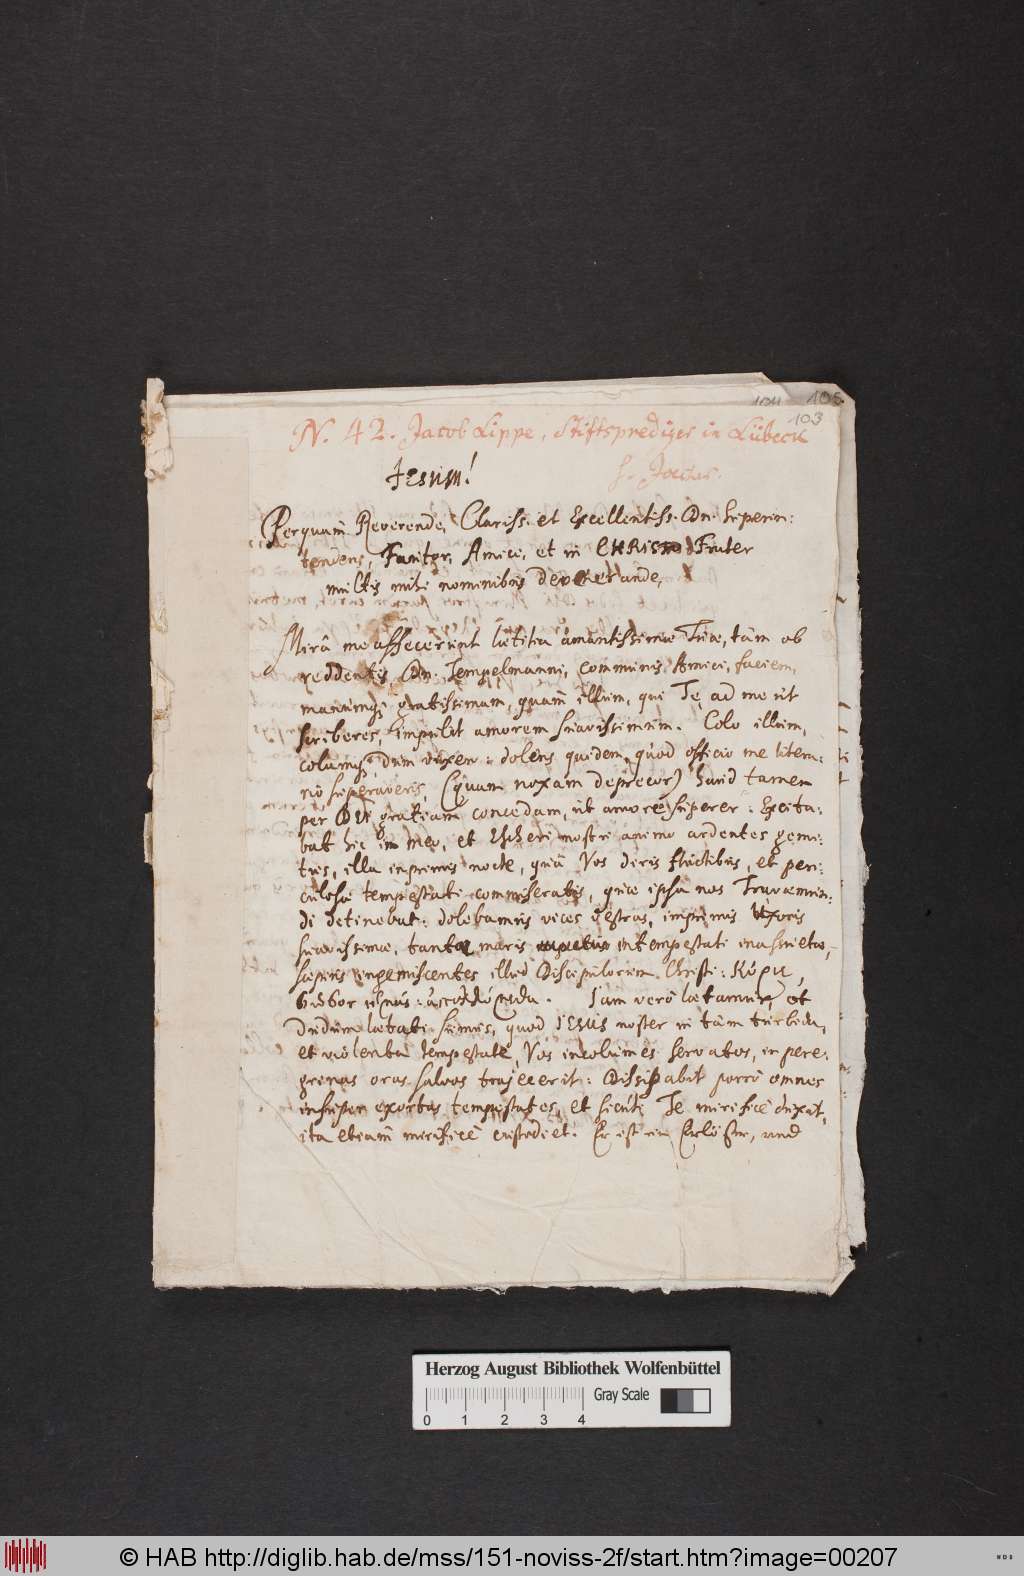 104 105
103
N. 42. Jacob Lippe, Stiftsprediger in Lübeck
Jesum!
Perquam Reverende, Clariss. et Excellentiss. Dn. Superin:
tendens, Fautor, Amice, et in CHRISTO Frater
multis mihi nominibus devenerande,
Mirâ me affecerunt lætitia amantissimæ Tuæ, tàm ob
reddentis, Dn. Tempelmanni, communis Amici, faciem,
mihi gratissimam, quam illum, qui Te, ad me ut
scriberes, impulit amorem suavissimum. Colo illum,
dum vixero: dolens quidem, quòd officio me litera:
rio superaveris, (quam noxam deprecor) haud tamen
per DEI gratiam concedam, ut amore superer: Excita:
bat hic in meo, et nostri animo ardentes gemi:
tus, illa inprimis nocte, quâ Vos diris fluctibus, et peri:
culosæ tempestati commiseratis, quæ ipsa nos Travæmun:
di detinebat: dolebamus vices Vestras, imprimis Uxoris
suavissimæ, tantæ maris intempestati inassuetæ,
sæpius ingemiscentes illud Discipulorum Christi: Κύριε,
σῶσον ἡμᾶς: ἀπολλύμεθα. Jam verò lætamur, et
dudum lætati sumus, quod JESUS noster in tàm turbida,
et violenta tempestate, Vos incolumes servatos, in pere:
grinas oras salvos trajecerit: Dissipabit porrò omnes
insuper exortas tempestates, et sicuti Te mirificè duxit,
ita etiam mirificè custodiet. Er ist ein Erlöser, und
Herzog August Bibliothek Wolfenbüttel
Gray Scale
0 1 2 3 4
© HAB http://diglib.hab.de/mss/151-noviss-2f/start.htm?image=00207